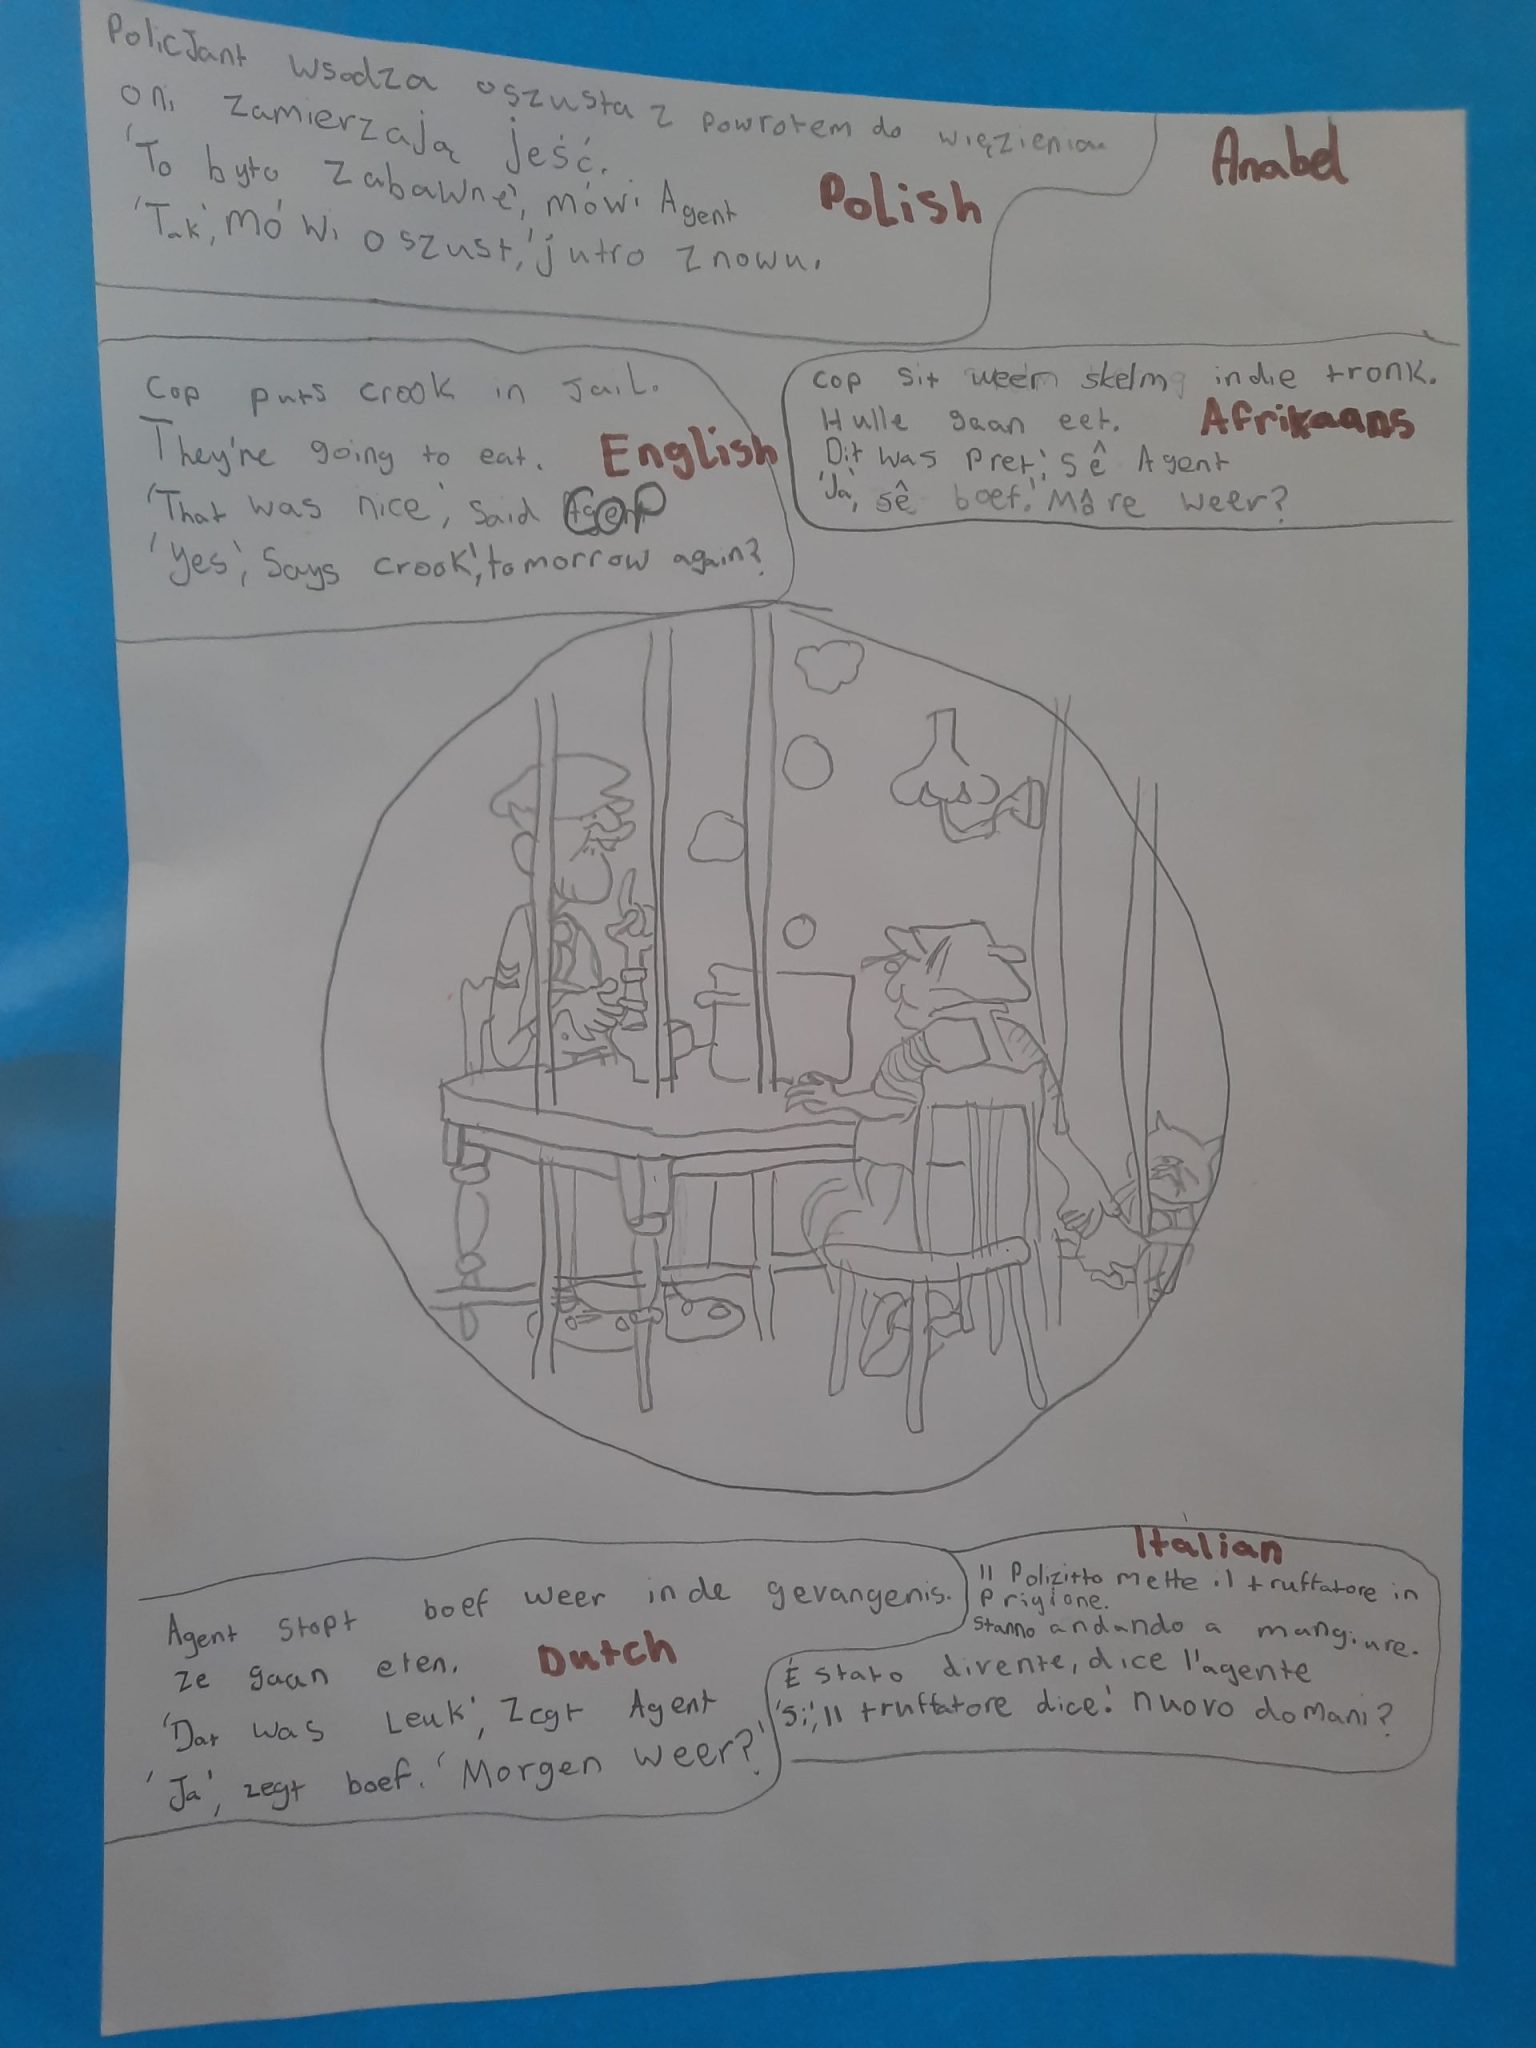 Policjant wsadza oszusta z powrotem do więzienia
oni zamierzają jeść.
'To było zabawne', mówi Agent
'Tak', mówi oszust, 'jutro znowu.
Polish
Anabel
Cop puts crook in jail.
They're going to eat.
English
'That was nice', said COP
'Yes', Says crook', tomorrow again?
cop sit weer skelm in die tronk.
Hulle gaan eet.
Afrikaans
Dit was Pret', sê Agent
'Ja', sê boef.' Môre weer?
Agent stopt boef weer in de gevangenis.
ze gaan eten.
Dutch
'Dat was Leuk', Zegt Agent
'Ja', zegt boef. 'Morgen weer?'
Italian
Il Polizitto mette il truffatore in
Prigione.
Stanno andando a mangiare.
É stato divente, dice l'agente
'Si', Il truffatore dice: nuovo domani?